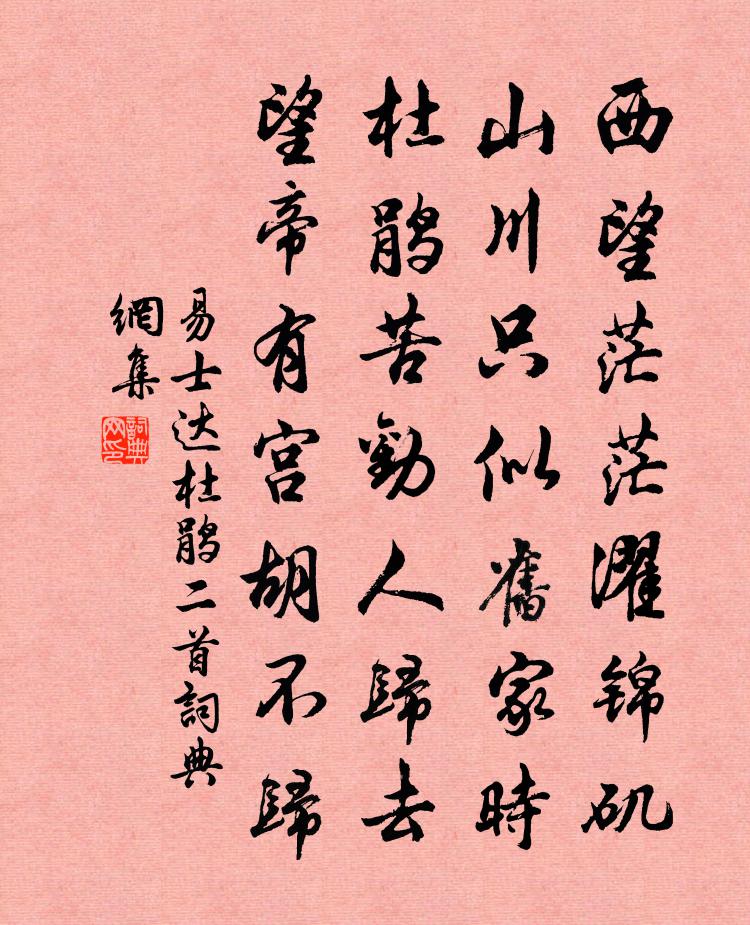 西望茫茫濯锦矶
山川只似舊家時
杜鹃苦勸人歸去
望帝有宫胡不歸
易士达杜鹃二首詞典
網集
詞典网印